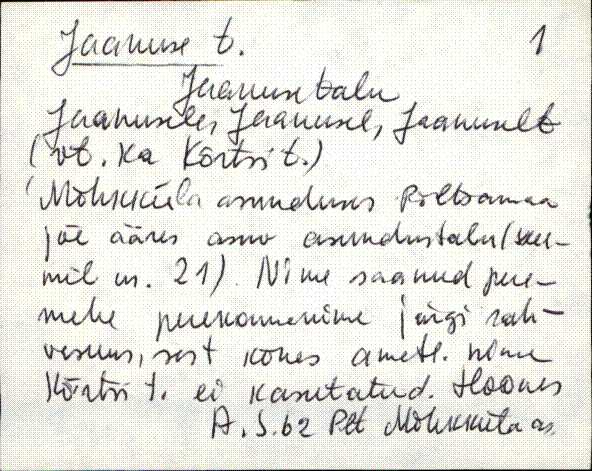 Jaanuse t. 1
Jaanuse talu
Jaanusele, Jaanusel, Jaanuselt
(vt. ka Kõrtsi t.)
Mõhkküla asunduses Põltsamaa
jõe ääres asuv asundustalu (
mil nr. 21). Nime saanud pere-
mehe perekonnanime järgi rah-
vasuus, sest kones ametl. nime
Kõrtsi t. ei kasutatud. Hoones
A. S. 62 Plt Mõhkküla as.